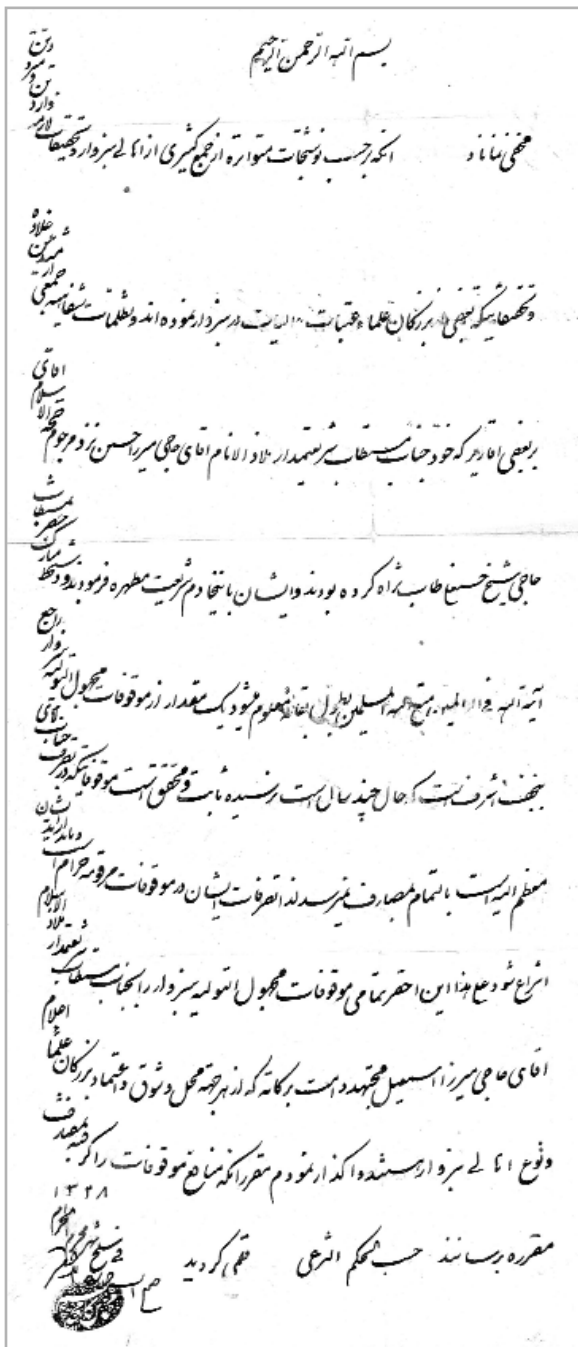 بسم الله الرحمن الرحیم
مخفی نماناد آنکه برحسب نوشتجات متواتره از جمع کثیری از اهالی سبزوار و تحقیقات لازمه
و تحقیقاتیکه بعضی از بزرگان علماء عتبات در سبزوار نموده‌اند و تظلمات شفاهیه جمعی
بر بعضی اقاریر که خود جناب مستطاب شریعتمدار ملاذ الانام اقای حاجی میرزا حسن نزد مرحوم حجة الاسلام اقای
حاجی شیخ حسنعلی طاب ثراه کرده بودند و ایشان باینخادم شریعت مطهره فرمودند و دستخط مبارک حضرت مستطاب
آیة الله متع الله المسلمین بطول بقائه معلوم میشود یک مقدار از موقوفات مجهول التولیه سبزوار راجع
بنجف اشرف است که حال چند سال است نرسیده ثابت و محقق است موقوفاتیکه در تصرف جناب اقای
معظم الیه است بالتمام بمصارف نمیرسد لذا تصرفات ایشان در موقوفات مرقومه حرام است و باید از ید ایشان
انتزاع شود علی هذا این احقر تمامی موقوفات مجهول التولیه سبزوار را بجناب مستطاب شریعتمدار ملاذ الاسلام
اقای حاجی میرزا اسمعیل مجتهد دامت برکاته که از هر جهة محل وثوق و اعتماد بزرگان علماء اعلام
و نوع اهالی سبزوار هستند واگذار نمودم مقرر آنکه منافع موقوفات را گرفته بمصارف
مقرره برسانند حسب الحکم الشرعی قلمی گردید فی سلخ شهر محرم الحرام ۱۳۲۸